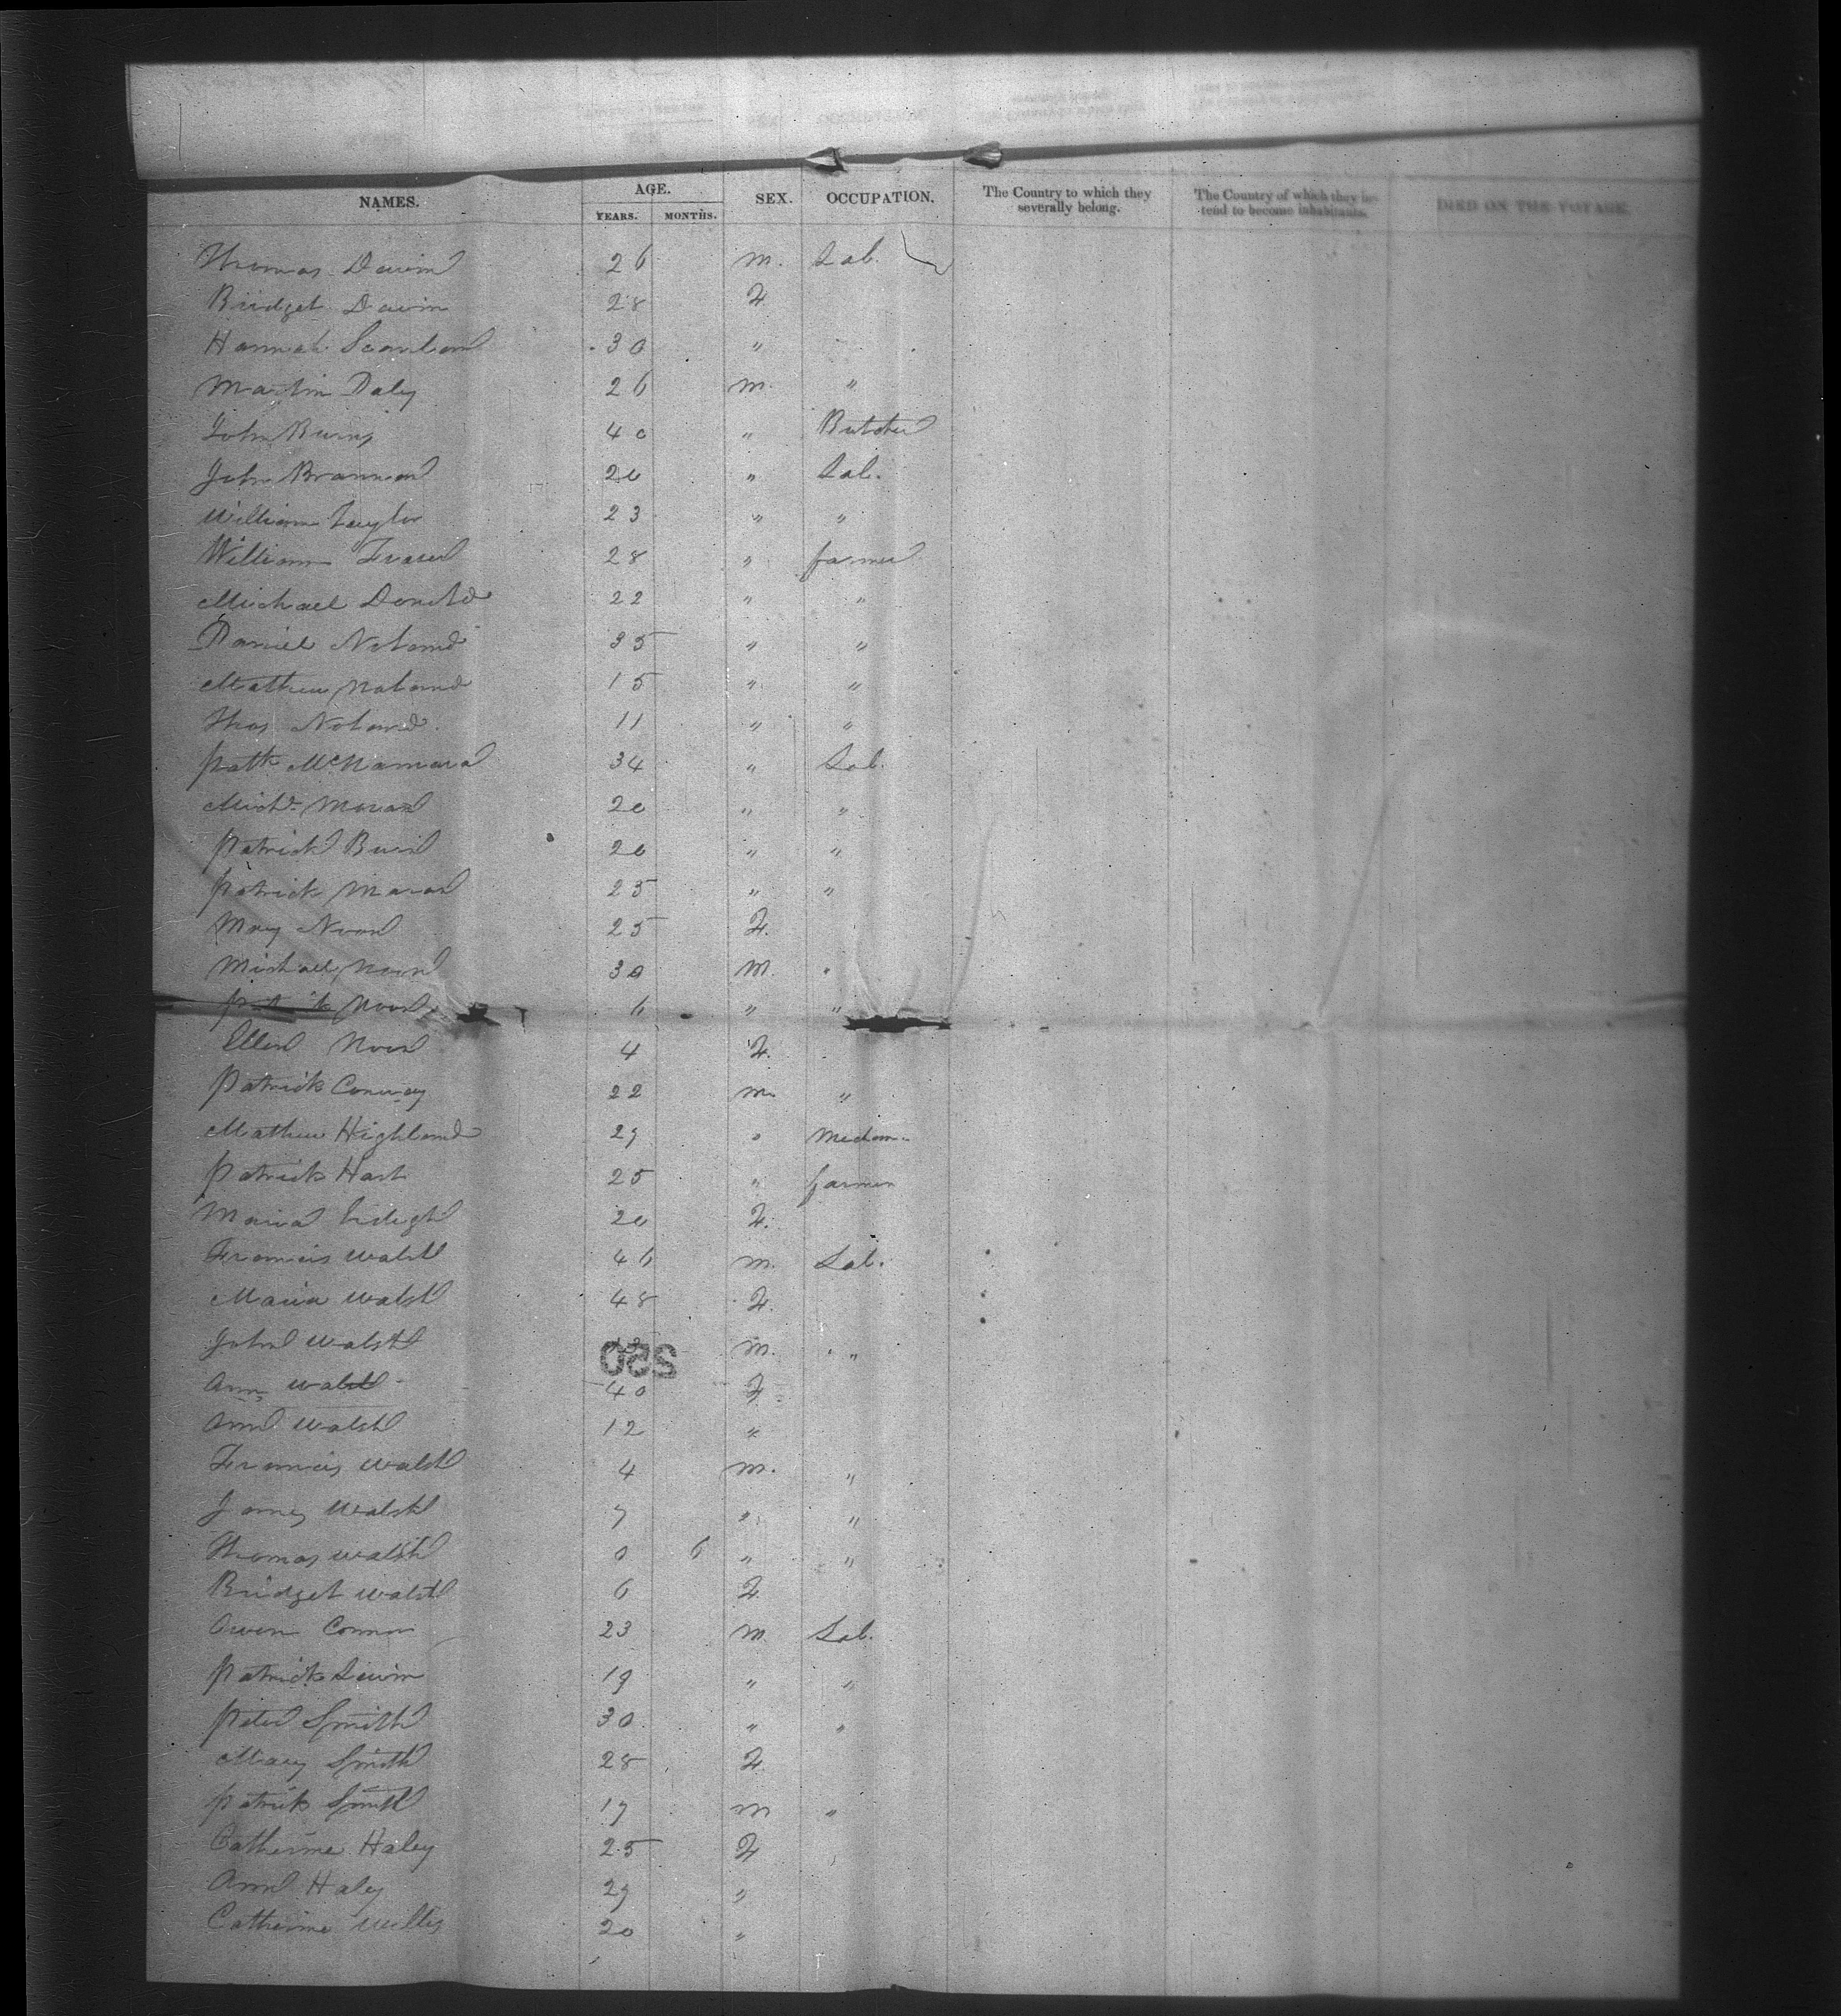 NAMES. AGE. SEX. OCCUPATION. The Country to which they severally belong. The Country of which they in-tend to become inhabitants. DIED ON THE VOYAGE.
YEARS. MONTHS.
Thomas Davin 26 m. Lab.
Bridget Davin 28 F
Hannah Scanlan 30 "
Martin Daly 26 m. "
John Burns 40 " Butcher
John Brannan 20 " Lab.
William Taylor 23 " "
William Fraser 28 " farmer
Michael 22 " "
Daniel Noland 35 " "
Mathew Noland 15 " "
Thos Noland 11 " "
Patk McNamara 34 " Lab.
Michl Moran 20 " "
Patrick 20 " "
Patrick Moran 25 " "
Mary Noon 25 F.
Michael Noon 30 M. "
Noon 6 " "
Ellen Noon 4 F.
Patrick Conway 22 m. "
Mathew Highland 29 "
Patrick Hart 25 " farmer
Maria 20 F.
Francis Walsh 46 m. Lab.
Maria Walsh 48 F.
John Walsh m. "
250
Ann Walsh 40 F
Ann Walsh 12 "
Francis Walsh 4 m. "
James Walsh 7 " "
Thomas Walsh 0 6 " "
Bridget Walsh 6 F
Owen Connor 23 m Lab.
Patrick 19 " "
Peter Smith 30 " "
Mary Smith 28 F
Patrick Smith 17 m "
Catherine Haley 25 F
Ann Haley 29 "
Catherine 20 "